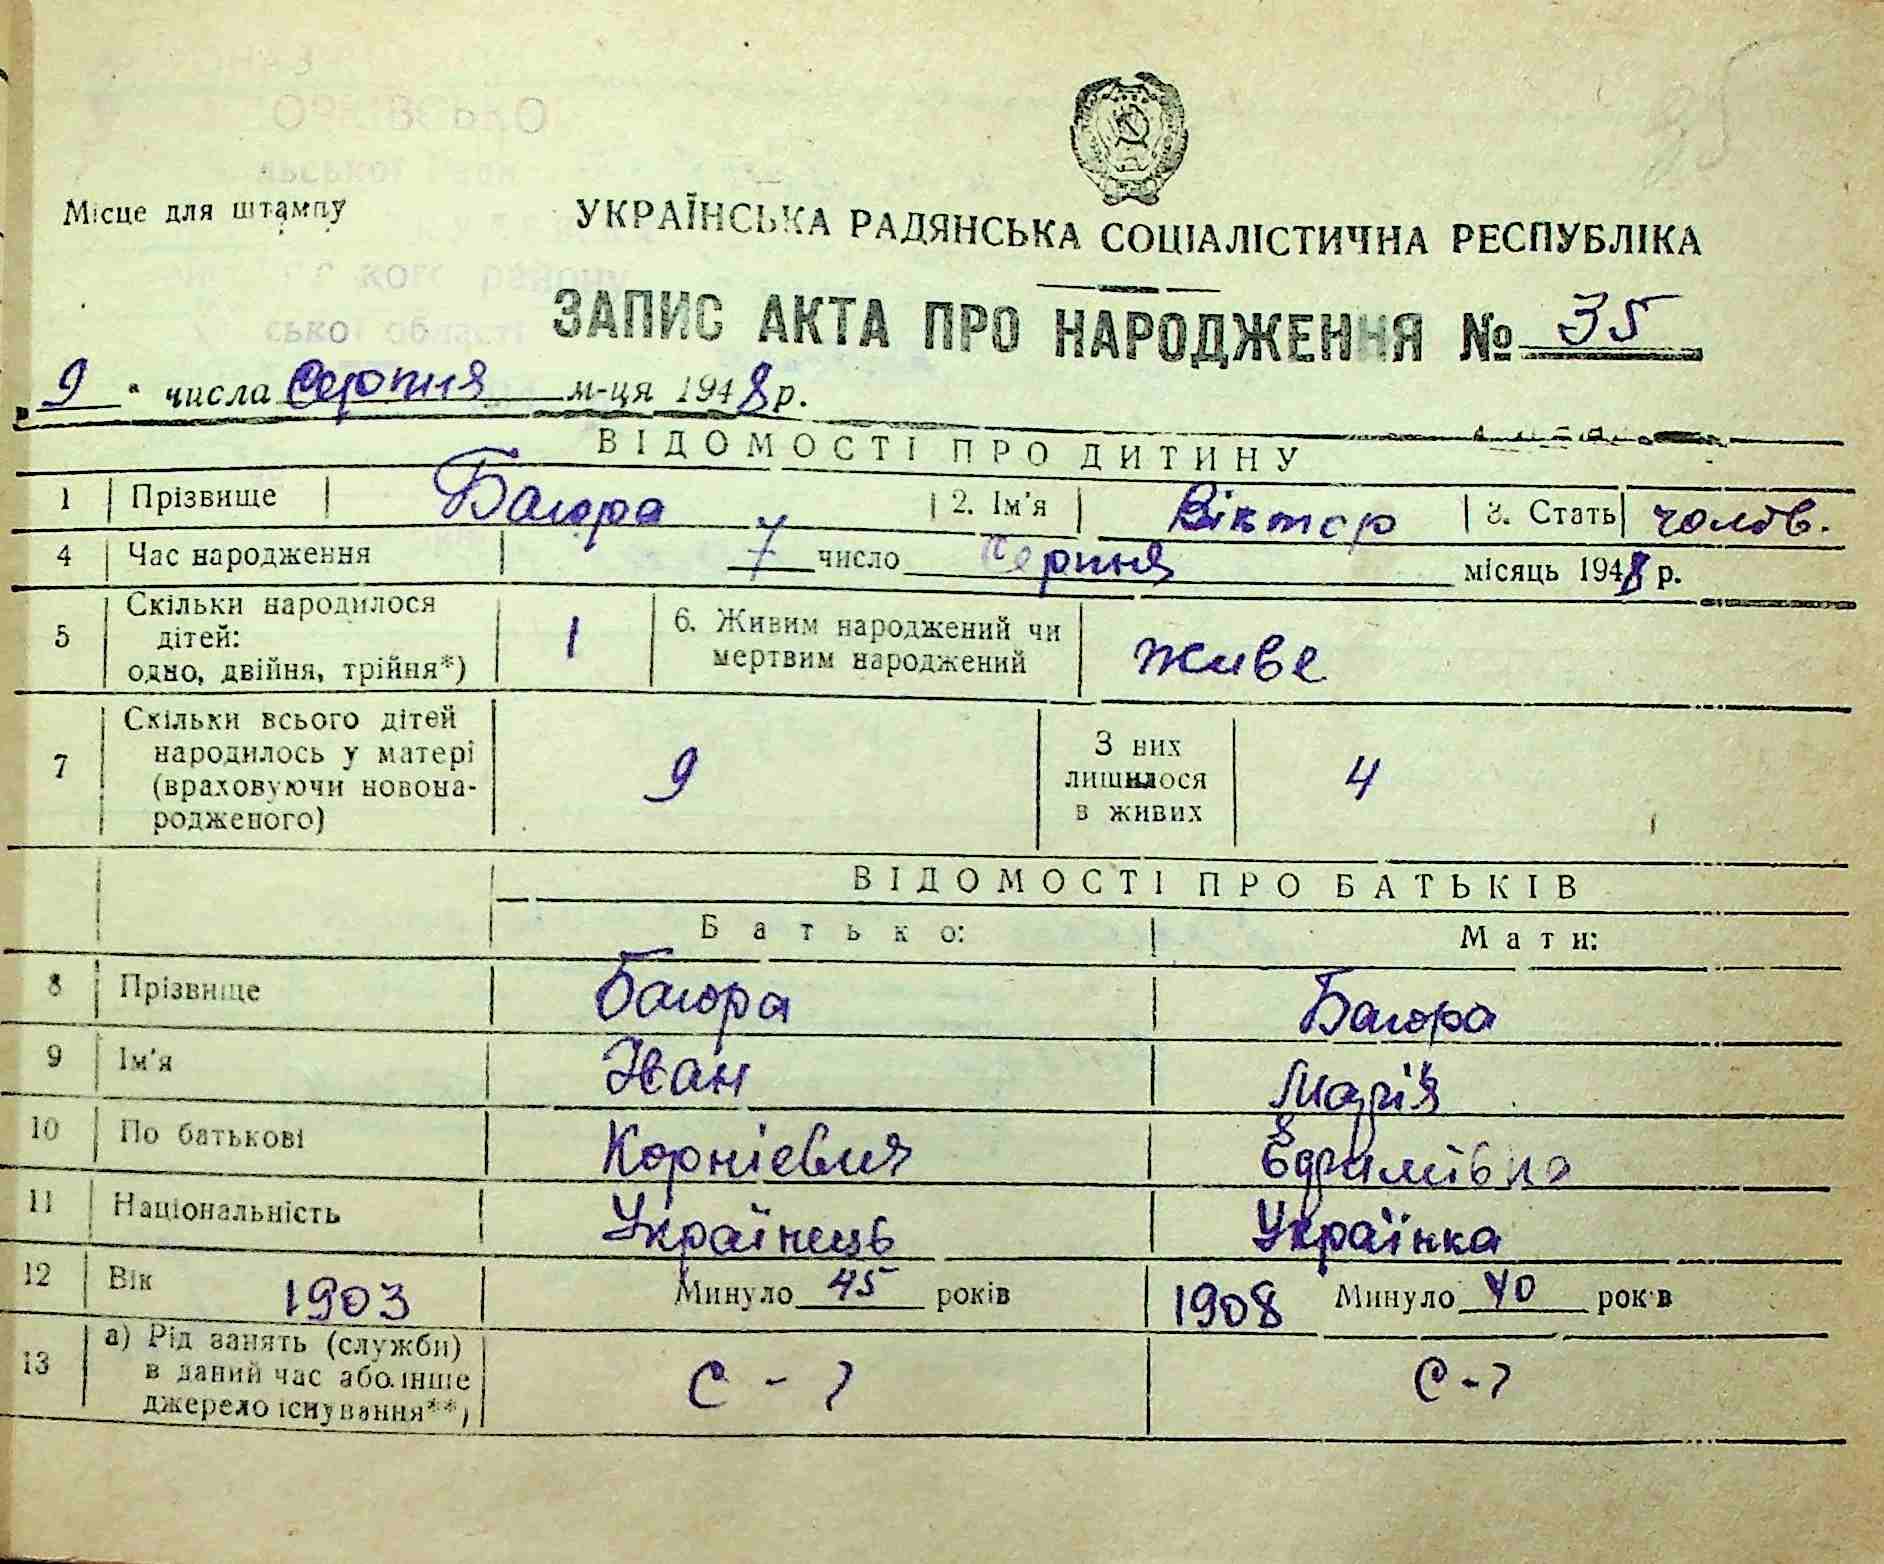 Місце для штампу
УКРАЇНСЬКА РАДЯНСЬКА СОЦІАЛІСТИЧНА РЕСПУБЛІКА
ЗАПИС АКТА ПРО НАРОДЖЕННЯ № 35
„ 9 " числа Серпня м-ця 1948 р.
ВІДОМОСТІ ПРО ДИТИНУ
1 Прізвище Багора 2. Ім'я Віктор 3. Стать чолов.
4 Час народження 7 число Серпня місяць 1948 р.
5 Скільки народилося дітей: одно, двійня, трійня*) 1 6. Живим народжений чи мертвим народжений живе
7 Скільки всього дітей народилось у матері (враховуючи новонародженого) 9 З них лишилося в живих 4
ВІДОМОСТІ ПРО БАТЬКІВ
Батько: Мати:
8 Прізвище Багора Багора
9 Ім'я Іван Марія
10 По батькові Корнієвич
11 Національність Українець Українка
12 Вік 1903 Минуло 45 років 1908 Минуло 40 років
13 а) Рід занять (служби) в даний час або інше джерело існування**)